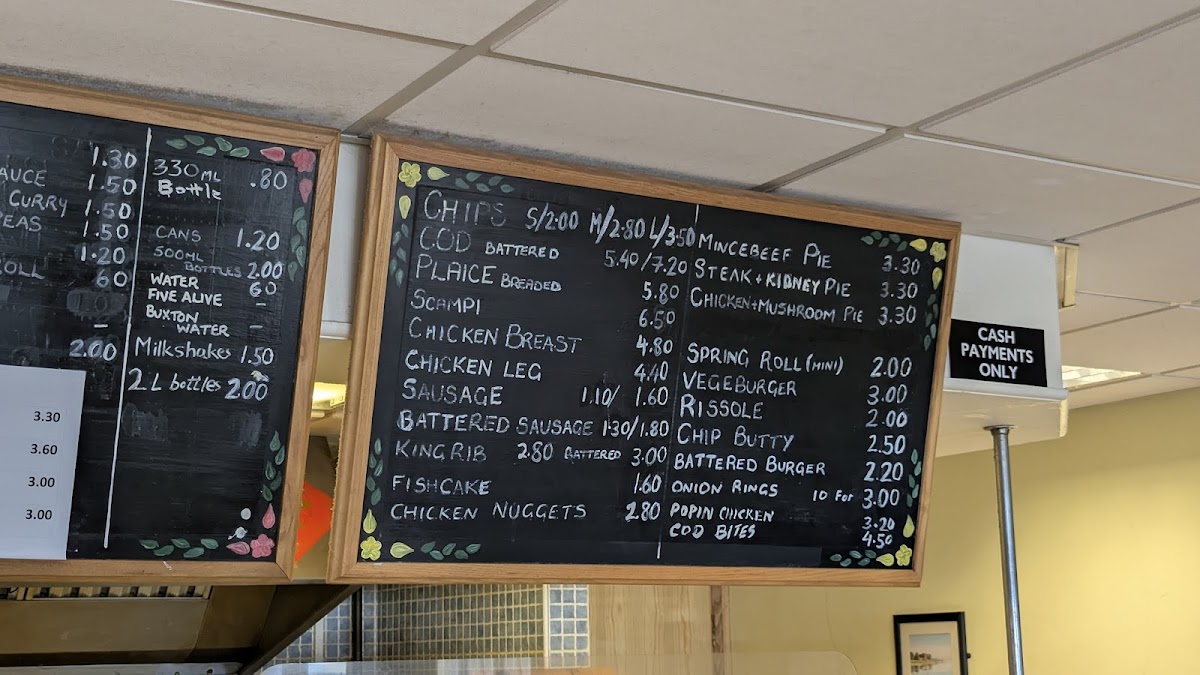 1.30
AUCE 1.50
CURRY 1.50
PEAS 1.50
1.20
ROLL 60
–
2.00
3.30
3.60
3.00
3.00
330ML .80
Bottle
CANS 1.20
500ML
BOTTLES 2.00
WATER 60
FIVE ALIVE –
BUXTON
WATER –
Milkshakes 1.50
2L bottles 2.00
CHIPS S/2.00 M/2.80 L/3.50
COD BATTERED 5.40/7.20
PLAICE BREADED 5.80
SCAMPI 6.50
CHICKEN BREAST 4.80
CHICKEN LEG 4.40
SAUSAGE 1.10/ 1.60
BATTERED SAUSAGE 1.30/1.80
KING RIB 2.80 BATTERED 3.00
FISHCAKE 1.60
CHICKEN NUGGETS 2.80
MINCEBEEF PIE 3.30
STEAK + KIDNEY PIE 3.30
CHICKEN+MUSHROOM PIE 3.30
SPRING ROLL (MINI) 2.00
VEGEBURGER 3.00
RISSOLE 2.00
CHIP BUTTY 2.50
BATTERED BURGER 2.20
ONION RINGS 10 FOR 3.00
POPIN CHICKEN 3.20
COD BITES 4.50
CASH
PAYMENTS
ONLY